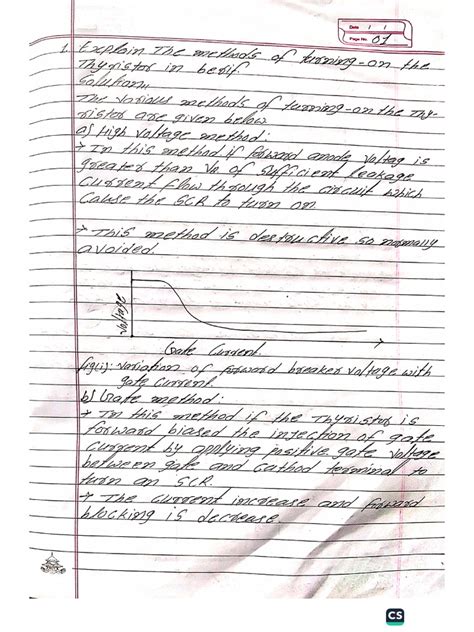 Date / /
Page No. 01
1. Explain The methods of turning-on the
Thyristor in berif.
Solution,,
The various methods of turning-on the Thy-
ristor are given below
a) High Voltage method:
→ In this method if forward anode voltag is
greater than Vo of sufficient leakage
Current flow through the circuit which
Cause the SCR to turn on
→ This method is destructive so normally
avoided
Voltage
Gate Current.
fig(i): variation of forward breaker voltage with
gate current.
b) Gate method:
→ In this method if the Thyristor is
forward biased the injection of gate
Current by applying positive gate voltage
between gate and Cathod terminal to
turn an SCR.
→ The Current increase and forward
blocking is decrease.
CS